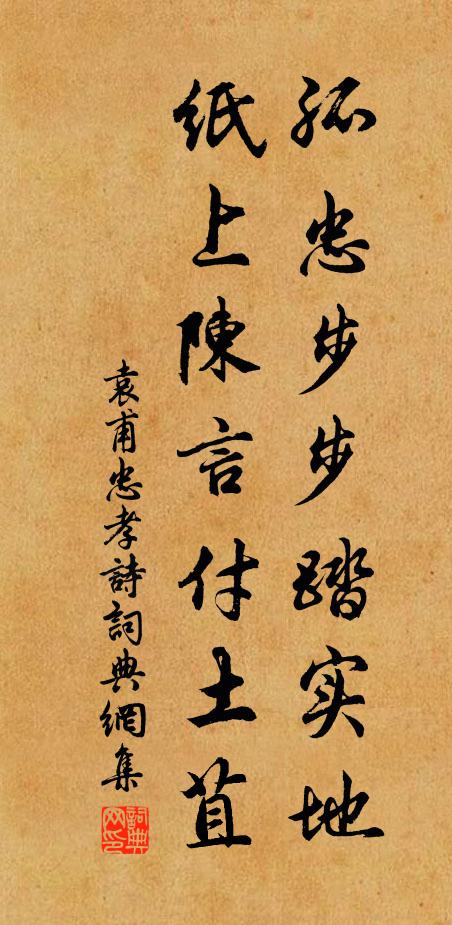 孤忠步步踏实地
紙上陳言付土苴
袁甫忠孝詩詞典網集
詞典网印